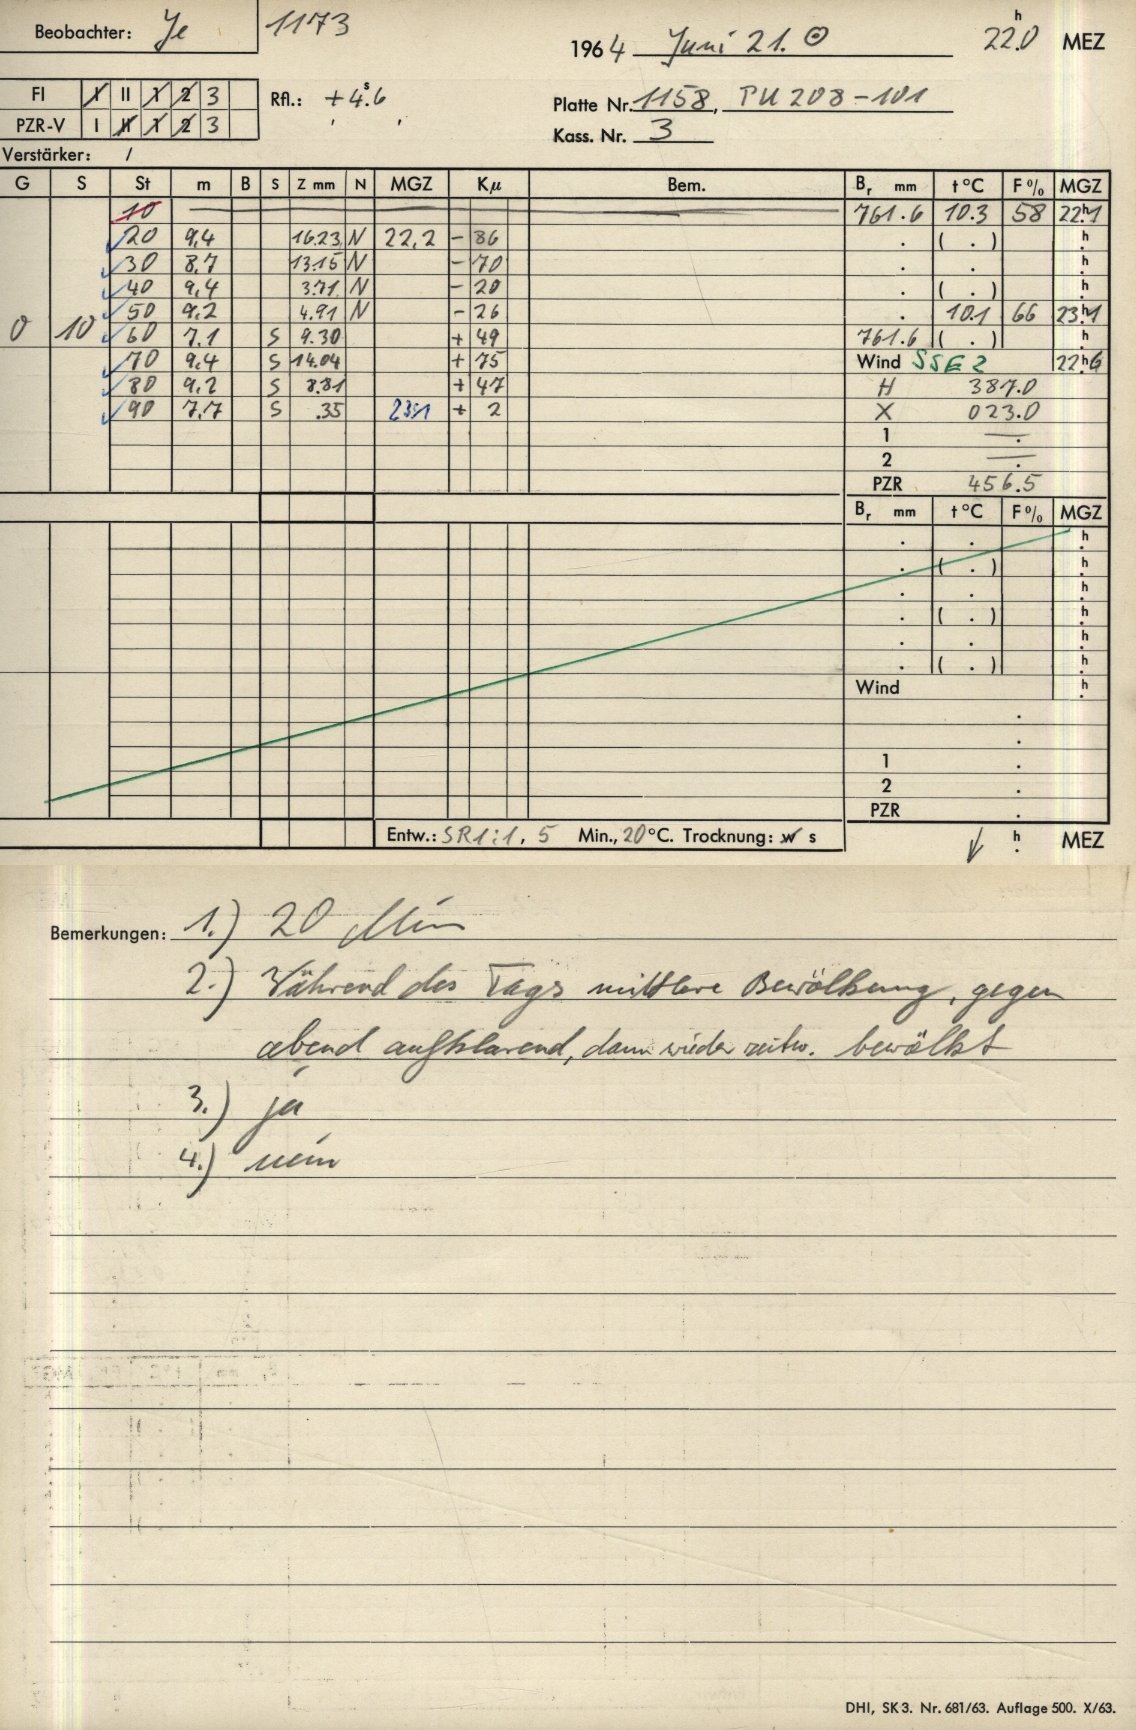 Beobachter: Je 1173
1964 Juni 21. ⊙ 22.0 h MEZ
FI I II 1 2 3
Rfl.: +4.6 s
Platte Nr. 1158, PU 208-101
PZR-V I II 1 2 3
Kass. Nr. 3
Verstärker: /
G S St m B S Z mm N MGZ Kμ Bem. Br mm t°C F% MGZ
10 761.6 10.3 58 22h1
20 9,4 16.23 N 22,2 - 86 . ( . ) h
30 8,7 13.15 N - 70 . . h
40 9,4 3.71 N - 20 . ( . ) h
50 9,2 4.91 N - 26 . 10.1 66 23h1
0 10 60 7,1 S 9.30 + 49 761.6 ( . ) h
70 9,4 S 14.04 + 75 Wind SSE 2 22h6
80 9,2 S 8.81 + 47 H 387.0
90 7,7 S .35 23,1 + 2 X 023.0
1 — .
2 — .
PZR 456.5
Br mm t°C F% MGZ
. . h
. ( . ) h
. . h
. ( . ) h
. . h
. ( . ) h
Wind h
.
.
1 .
2 .
PZR .
Entw.: SR1:1, 5 Min., 20°C. Trocknung: w s h . MEZ
Bemerkungen: 1.) 20 Min
2.) Während des Tags mittlere Bewölkung, gegen
abend aufklarend, dann wieder zeitw. bewölkt
3.) ja
4.) nein
DHI, SK 3. Nr. 681/63. Auflage 500. X/63.